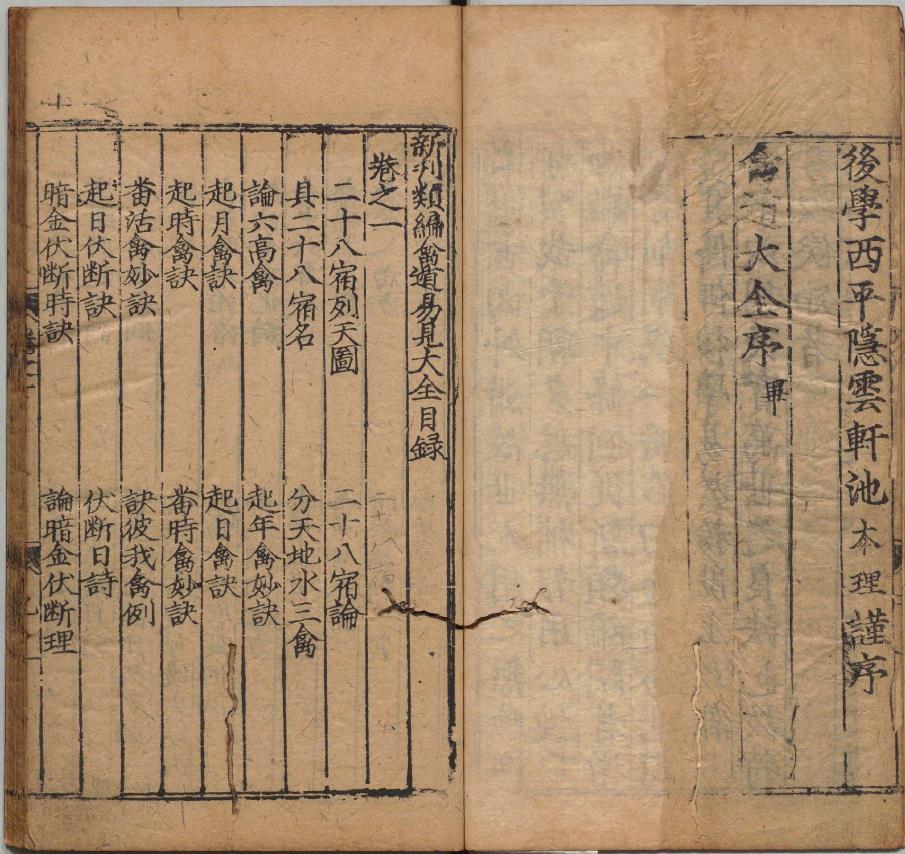 後學西平隱雲軒池本理謹序
禽遁大全序畢
新刋類編禽遁易見大全目録
卷之一
二十八宿列天圖
二十八宿論
具二十八宿名
分天地水三禽
論六高禽
起年禽妙訣
起月禽訣
起日禽訣
起時禽訣
番時禽妙訣
番活禽妙訣
訣彼我禽例
起日伏断訣
伏断日詩
暗金伏断時訣
論暗金伏断理